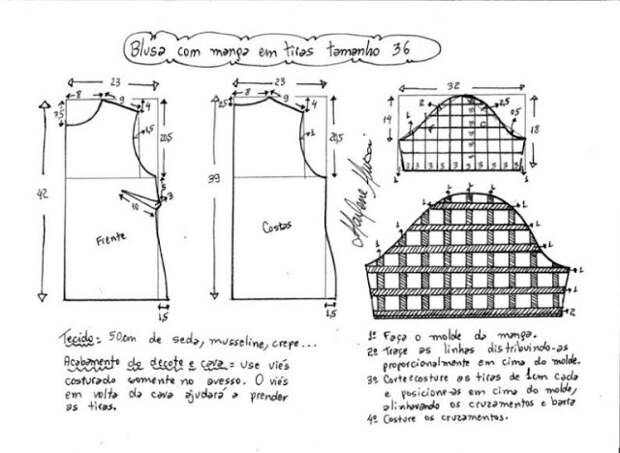 Blusa com manga em tiras tamanho 36
23
8
9
4
7,5
1,5
20,5
42
5
3
10
Frente
1,5
23
8
9
4
2,5
1
20,5
39
Costas
1,5
Marlene Mukai
32
2
2,5
1
0,5
14
18
3 3 3 3 3 3 3
1 1
1 1 1 1 1 1 1
1
1
1
1
2
Tecido = 50cm de seda, musseline, crepe...
Acabamento do decote e cava = Use viés
costurado somente no avesso. O viés
em volta da cava ajudará a prender
as tiras.
1º Faça o molde da manga.
2º Trace as linhas distribuindo-as
proporcionalmente em cima do molde.
3º Corte e costure as tiras de 1cm cada
e posicione-as em cima do molde,
alinhavando os cruzamentos e barra
4º Costure os cruzamentos.